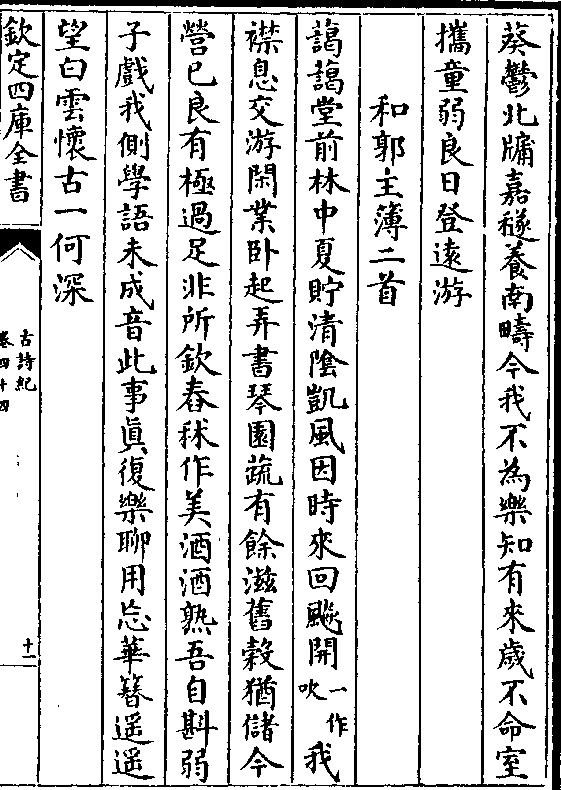 葵鬱北牖嘉穟養南疇今我不為樂知有來歲不命室
攜童弱良日登遠游
和郭主簿二首
藹藹堂前林中夏貯清陰凱風因時來回飈開一作吹我
襟息交游閑業卧起弄書琴園蔬有餘滋舊穀猶儲今
營已良有極過足非所欽舂秫作美酒酒熟吾自斟弱
子戲我側學語未成音此事真復樂聊用忘華簪遥遥
望白雲懷古一何深
欽定四庫全書
古詩紀
卷四十四
十一